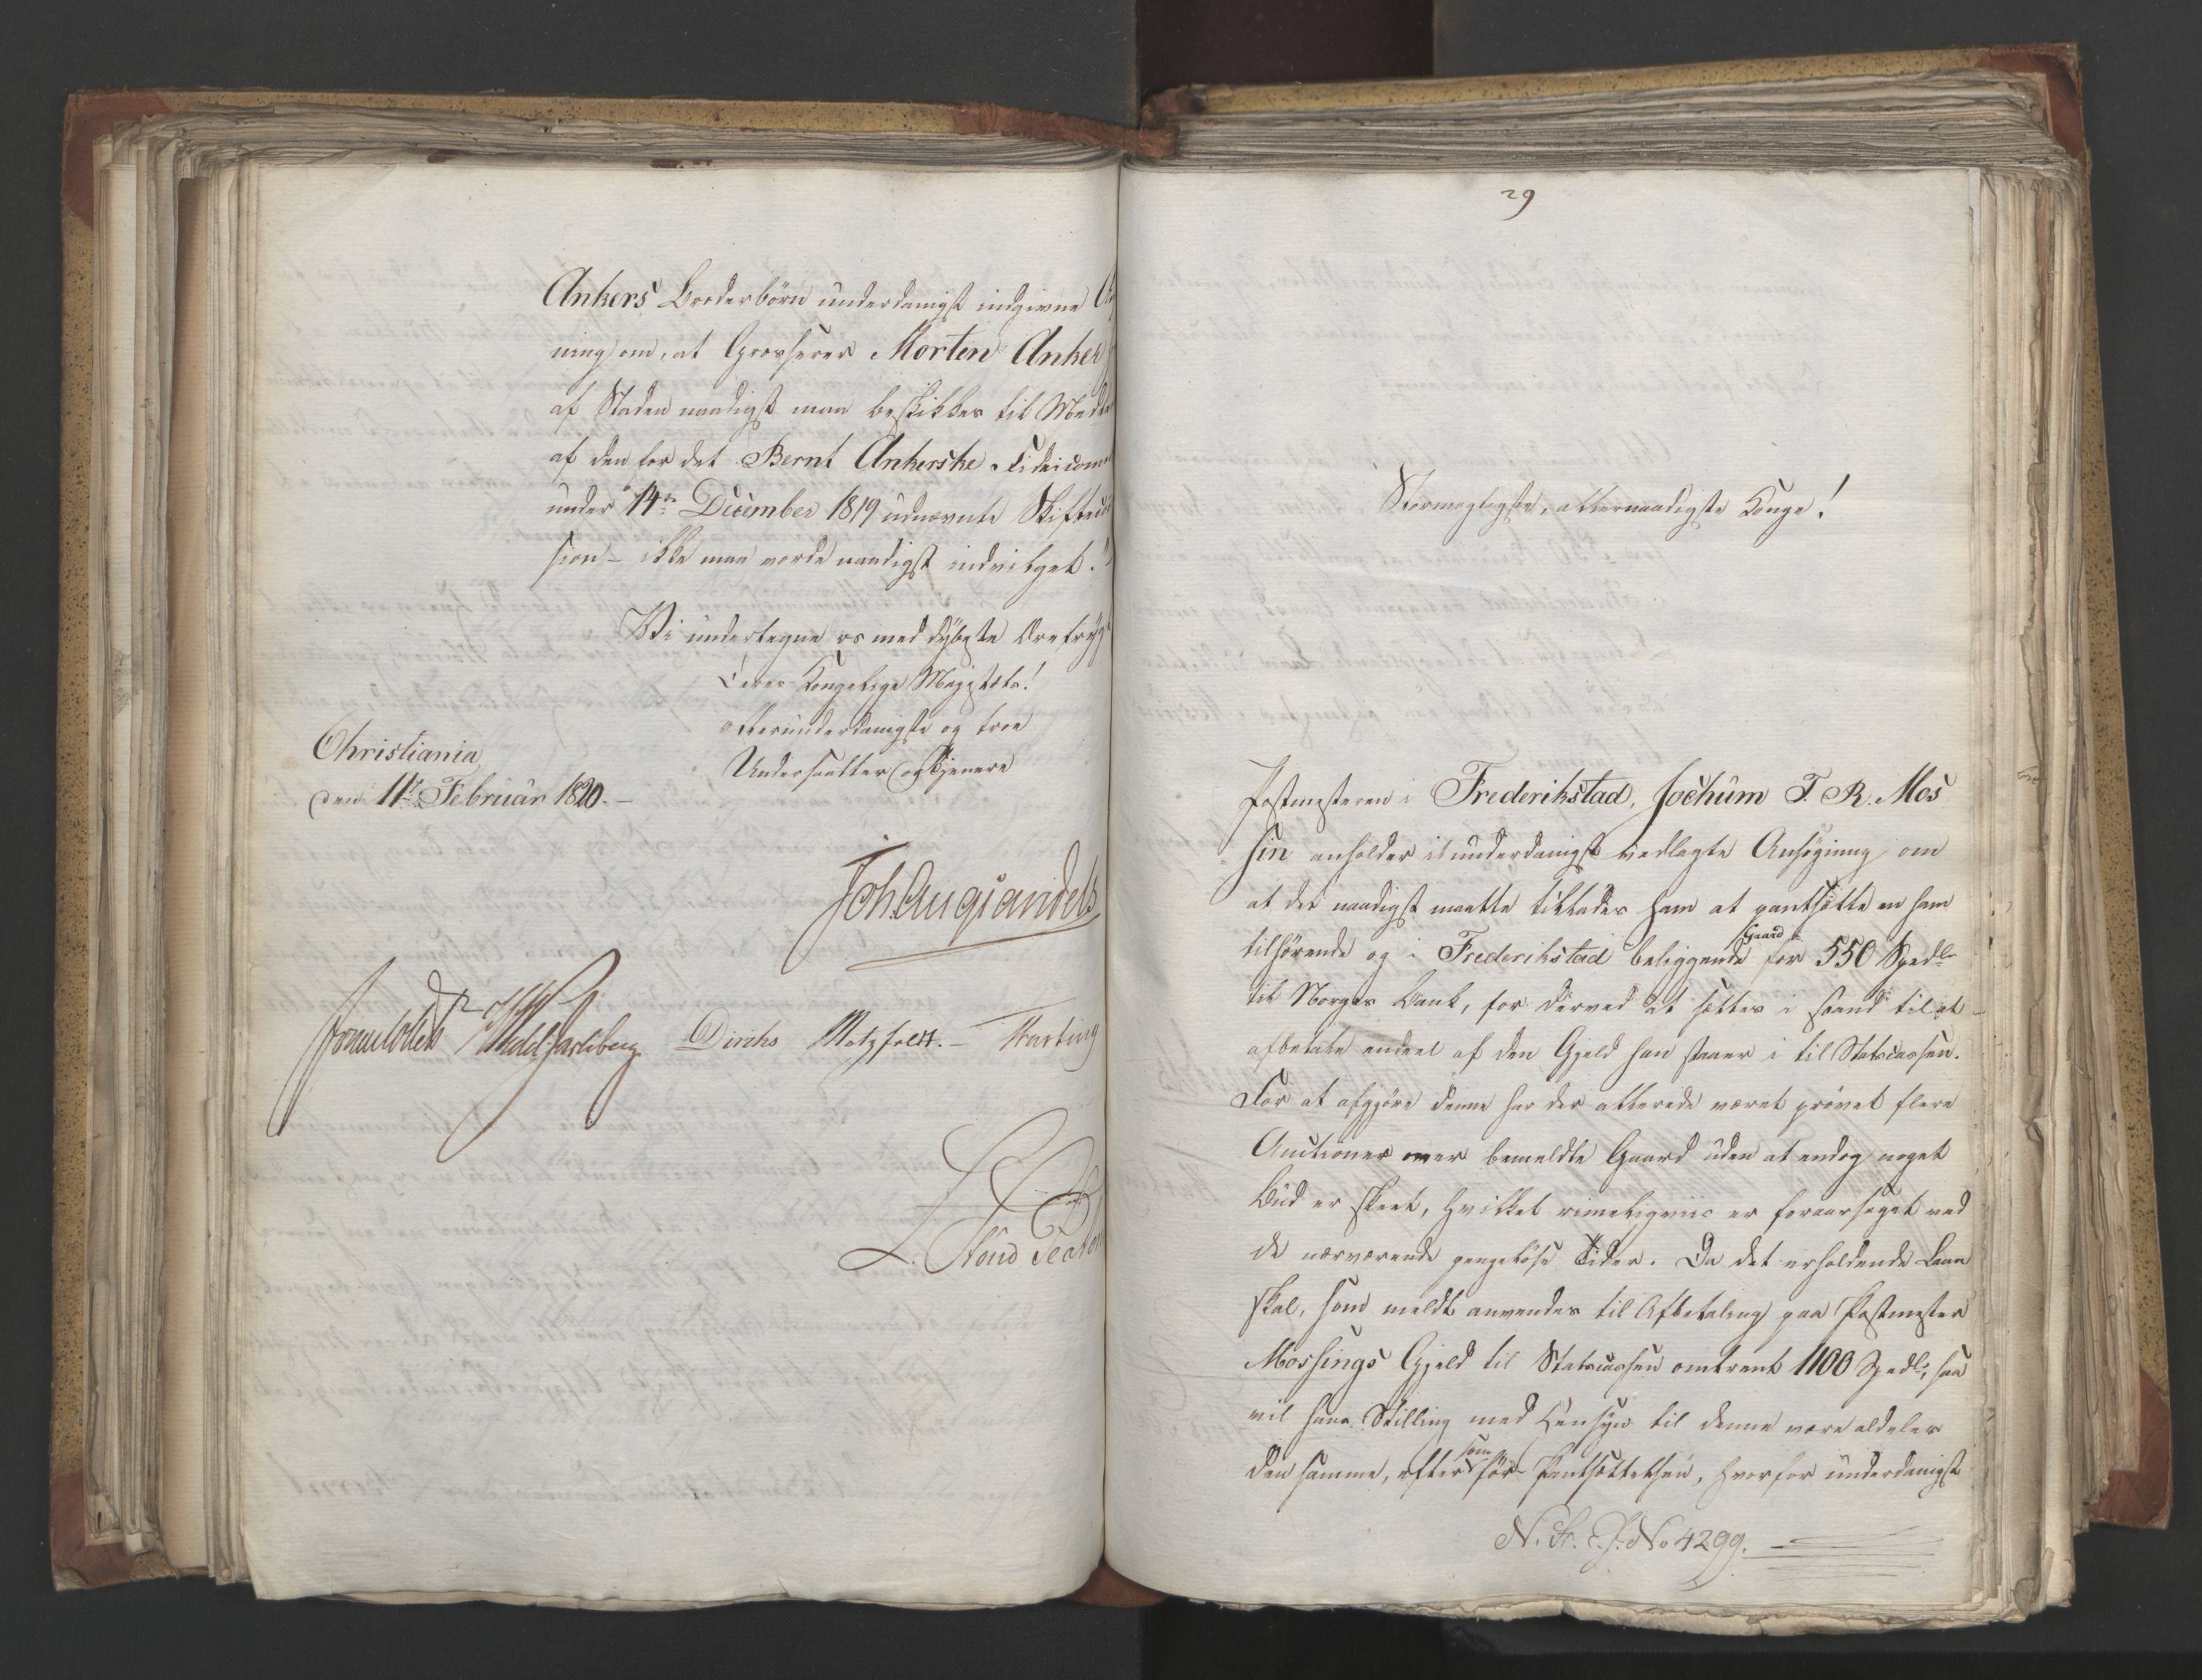 Ankers Broderbörn underdanigst indgivne An
ning om, at Grosserer Morten Anker
af Staden naadigst maa beskikkes til Medl
af den for det Bernt Ankerske Fideicom
under 14de December 1819 udnævnte Skiftecom
sion – ikke maa vorde naadigst indvilget."
Vi undertegne os med dybeste Ærefrygt
Deres Kongelige Majestæts!
allerunderdanigste og troe
Undersaatter og Tjenere
Christiania
den 11te Februar 1820. –
Joh. Aug. Sandels
Sommerhielm HWedel Jarlsberg Diriks Motzfeldt. – Fasting
L. Stoud Platou
29
Stormægtigste, allernaadigste Konge!
Postmesteren i Frederikstad, Jochum T. R. Mos
sin anholder i underdanigst vedlagte Ansøgning om
at det naadigst maatte tillades ham at pantsætte en ham
tilhörende og i Frederikstad beliggende Gaard for 550 Spedlr
til Norges Bank, for derved at sættes i stand til at
afbetale endeel af den Gjeld han staaer i til Statscassen.
For at afgjöre denne har der allerede været prövet flere
Auctioner over bemeldte Gaard uden at endog noget
Bud er skeet, hvilket rimeligviis er foraarsaget ved
de nærværende pengelöse Tider. Da det erholdende Laan
skal, som meldt anvendes til Afbetaling paa Postmester
Mossings Gjeld til Statscassen omtrent 1100 Spedlr, saa
vil hans Stilling med Hensyn til denne være aldeles
den samme, efter som för Pantsættelsen, hvorfor underdanigst
N. St. J. No 4299.